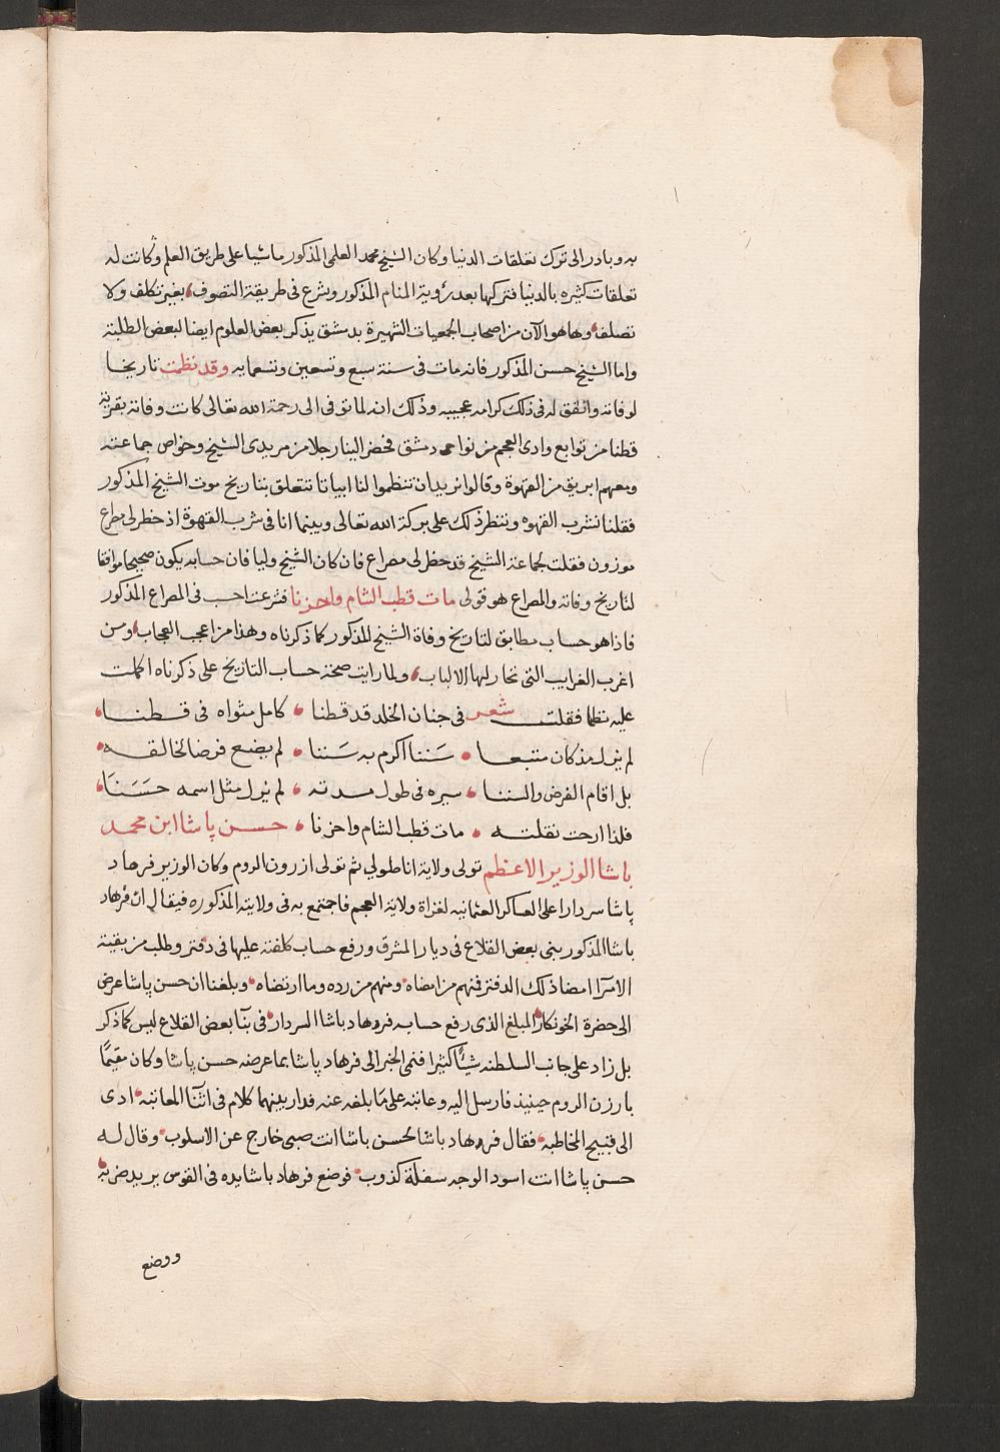 به وبادر الى ترك تعلقات الدنيا وكان الشيخ محمد العلمى المذكور ماشيا على طريق العلم وكانت له
تعلقات كثيره بالدنيا فتركها بعد رؤية المنام المذكور وشرع فى طريقة التصوف بغير تكلف ولا
تصلف وها هو الآن من اصحاب الجمعيات الشهيرة بدمشق يذكر بعض العلوم ايضا لبعض الطلبة
واما الشيخ حسن المذكور فانه مات فى سنة سبع وتسعين وتسعمايه وقد نظمت تاريخا
لوفاته واتفق له فى ذلك كرامه عجيبه وذلك انه لما توفى الى رحمة الله تعالى كانت وفاته بقرية
قطنا من توابع وادى العجم من نواحى دمشق فحضر الينا رجلا من مريدى الشيخ وخواص جماعته
ومعهم ابريق من القهوة وقالوا نريد ان تنظموا لنا ابياتا تتعلق بتاريخ موت الشيخ المذكور
فقلنا نشرب القهوه وننظر ذلك على بركة الله تعالى وبينما انا فى شرب القهوة اذ خطر لى مصراع
موزون فقلت لجماعة الشيخ قد خطر لى مصراع فان كان الشيخ وليا فان حسابه يكون صحيحا موافقا
لتاريخ وفاته والمصراع هو قولى مات قطب الشام واحزنا فشرعت احسب فى المصراع المذكور
فاذا هو حساب مطابق لتاريخ وفاة الشيخ المذكور كما ذكرناه وهذا من اعجب العجاب ومن
اغرب الغرايب التى تحار لها الالباب ولما رايت صحة حساب التاريخ على ذكرناه اكملت
عليه نظما فقلت شعر فى جنان الخلد قد قطنا كامل مثواه فى قطنا
لم يزل مذ كان متبعا سَننا اكرم به سَننا لم يضع فرضا لخالقه
بل اقام الفرض والسننا سيره فى طول مدته لم يزل مثل اسمه حَسَنَا
فلذا ارخت نقلته مات قطب الشام واحزنا حسن پاشا ابن محمد
باشا الوزير الاعظم تولى ولاية اناطولي ثم تولى ازرون الروم وكان الوزير فرهاد
پاشا سردارا على العساكر العثمانيه لغزاة ولاية العجم فاجتمع به فى ولايته المذكوره فيقال ان فرهاد
باشا المذكور بنى بعض القلاع فى ديار المشرق ورفع حساب كلفته عليها فى دفتر وطلب من بقية
الامرآ امضا ذلك الدفتر فمنهم من امضاه ومنهم من رده وما ارتضاه وبلغنا ان حسن پاشا عرض
الى حضرة الخونكار المبلغ الذى رفع حسابه فرهاد باشا السردار فى بنآ بعض القلاع ليس كما ذكر
بل زاد على جانب السلطنه شيئًا كثيرا فنمى الخبر الى فرهاد پاشا بما عرضه حسن پاشا وكان مقيمًا
بارزن الروم حينيذ فارسل اليه وعاتبه على مَا بلغه عنه فدار بينهما كلام فى اثنآ المعاتبه ادى
الى قبيح المخاطبه فقال فرهاد باشا لحسن باشا انت صبى خارج عن الاسلوب وقال له
حسن پاشا انت اسود الوجه سفلة كذوب فوضع فرهاد باشا يده فى القوس يريد ضربه
ووضع